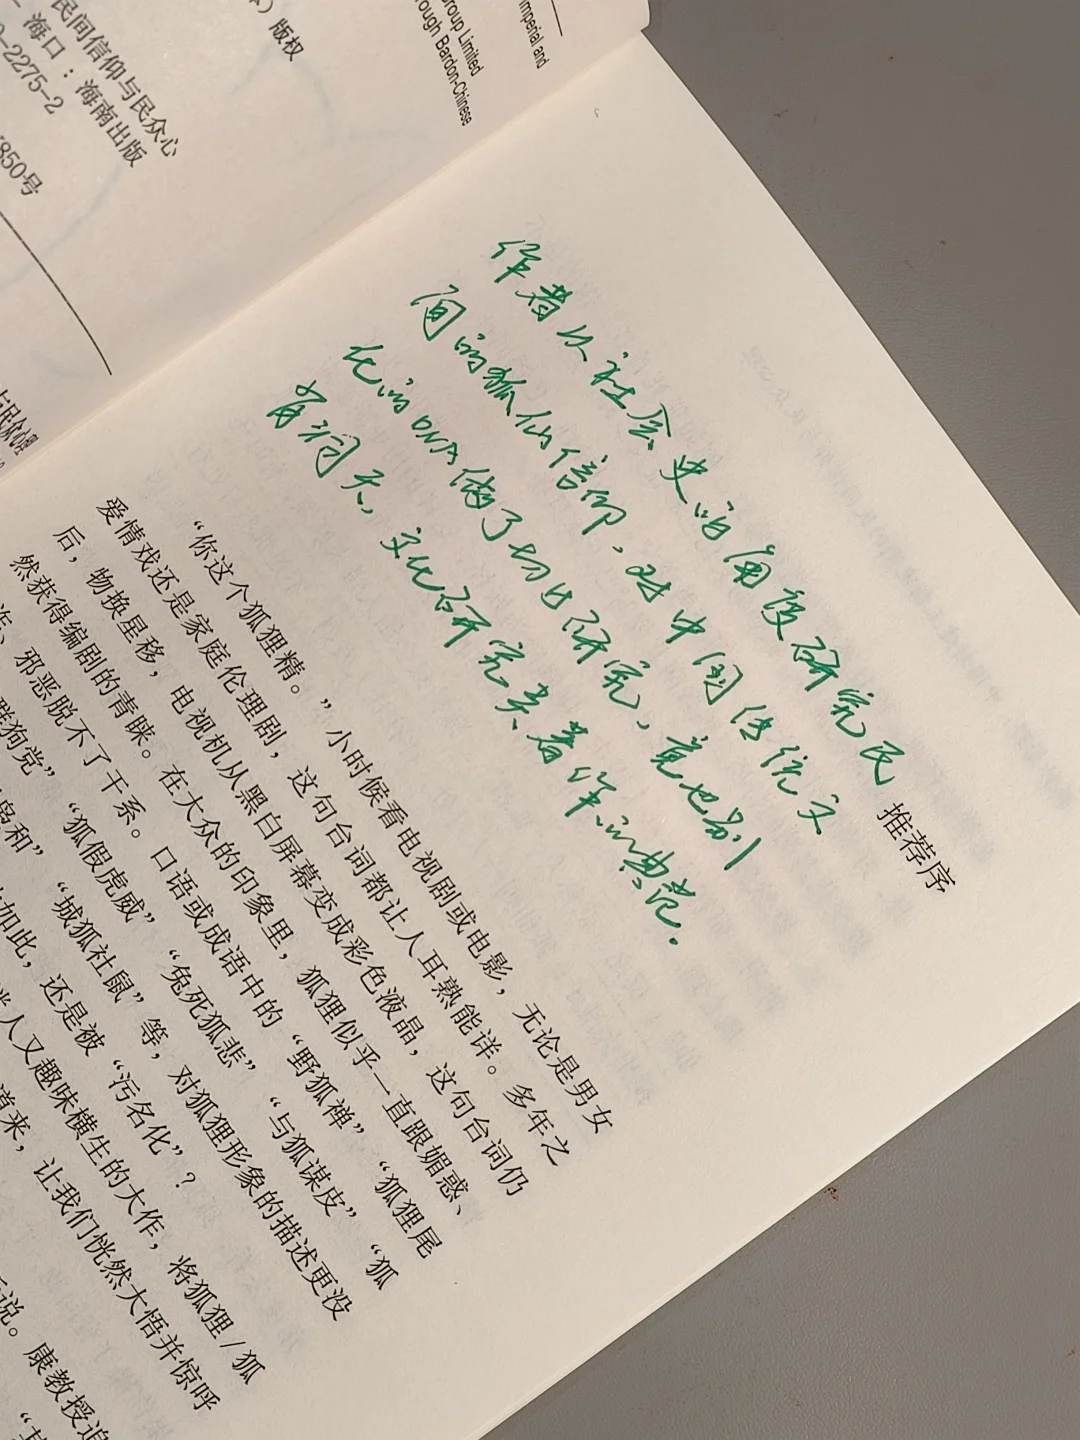 民间信仰与民众心
海口：海南出版
-2275-2
850号
版权
Group Limited
rough Bardon-Chinese
Imperial and
与民众心理
作者以社会史的角度研究民
间的狐仙信仰，对中国传统文
化的DNA做了切片研究，竟也别
有洞天，文化研究类著作的典范.
推荐序
“你这个狐狸精。”小时候看电视剧或电影，无论是男女
爱情戏还是家庭伦理剧，这句台词都让人耳熟能详。多年之
后，物换星移，电视机从黑白屏幕变成彩色液晶，这句台词仍
然获得编剧的青睐。在大众的印象里，狐狸似乎一直跟媚惑、
邪恶脱不了干系。口语或成语中的“野狐禅”“狐狸尾
群狗党”“狐假虎威”“兔死狐悲”“与狐谋皮”“狐
和”“城狐社鼠”等，对狐狸形象的描述更没
如此，还是被“污名化”？
人又趣味横生的大作，将狐狸/狐
道来，让我们恍然大悟并惊呼
说。康教授追